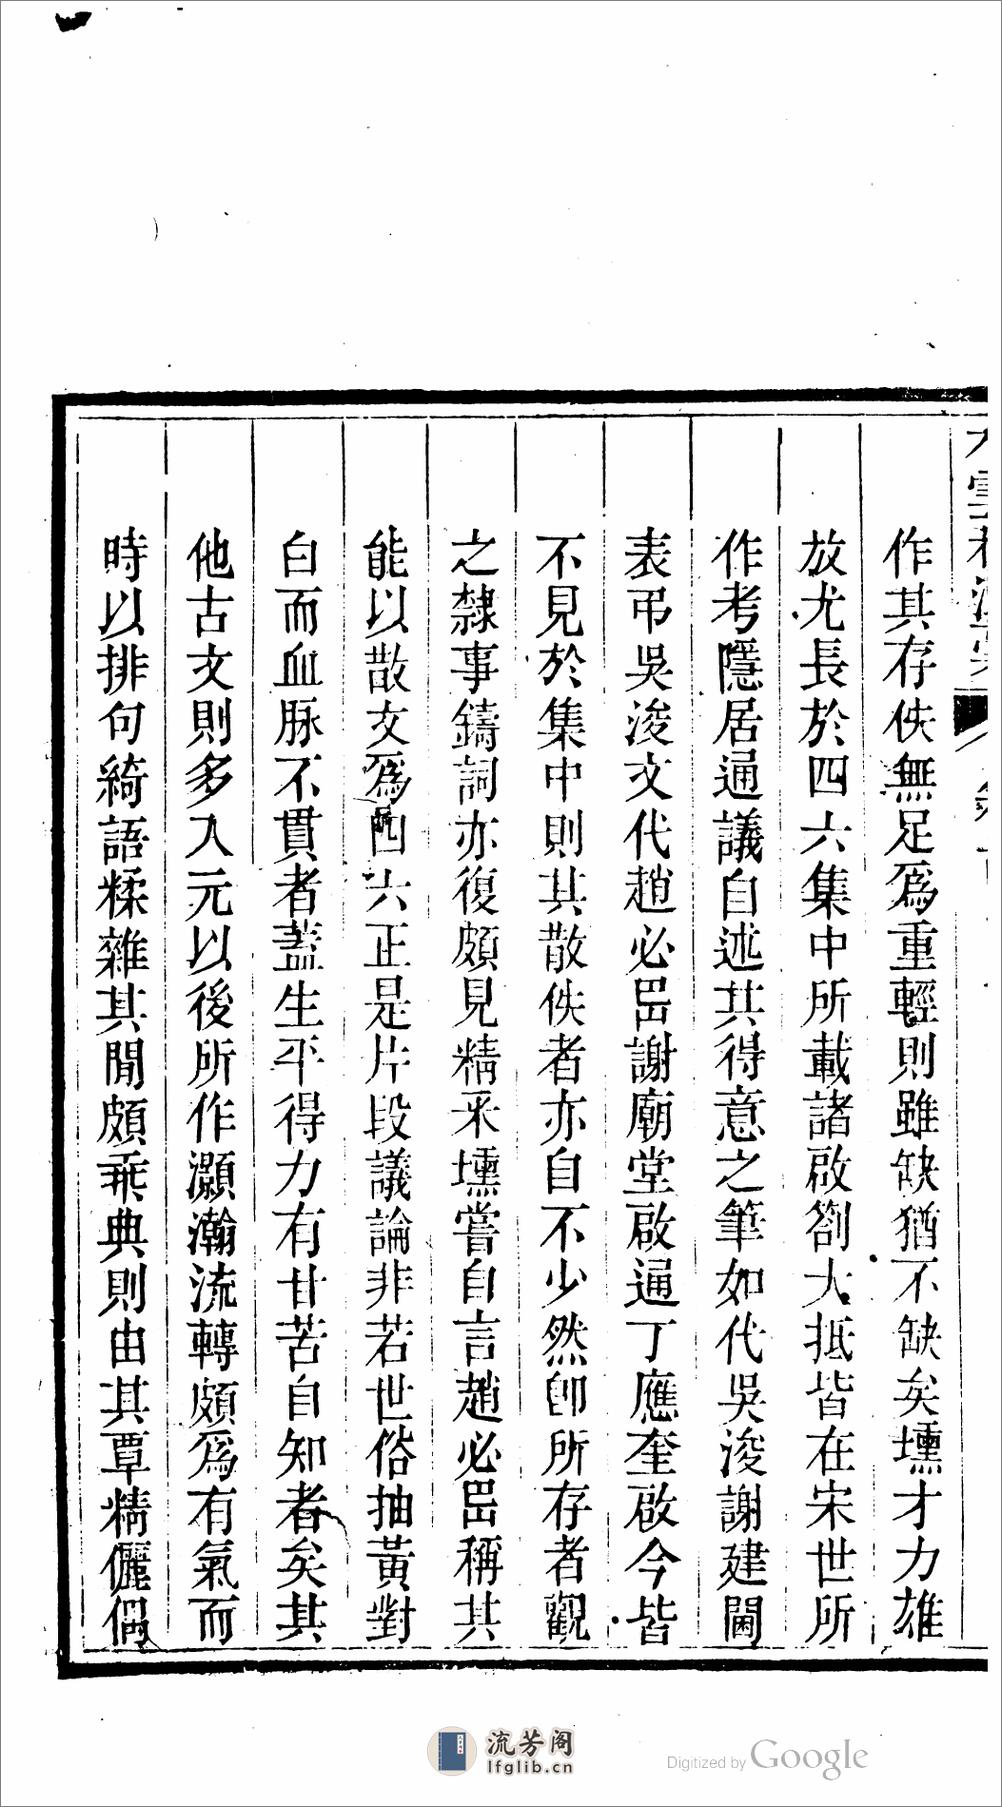 作其存佚無足爲重輕則雖缺猶不缺矣壎才力雄
放尤長於四六集中所載諸啟劄大抵皆在宋世所
作考隱居通議自述其得意之筆如代吳浚謝建閫
表弔吳浚文代趙必岊謝廟堂啟通丁應奎啟今皆
不見於集中則其散佚者亦自不少然卽所存者觀
之隸事鑄詞亦復頗見精采壎嘗自言趙必岊稱其
能以散文爲四六正是片段議論非若世俗抽黃對
白而血脉不貫者蓋生平得力有甘苦自知者矣其
他古文則多入元以後所作灝瀚流轉頗爲有氣而
時以排句綺語糅雜其閒頗乖典則由其覃精儷偶
流芳阁
lfglib.cn
Digitized by Google